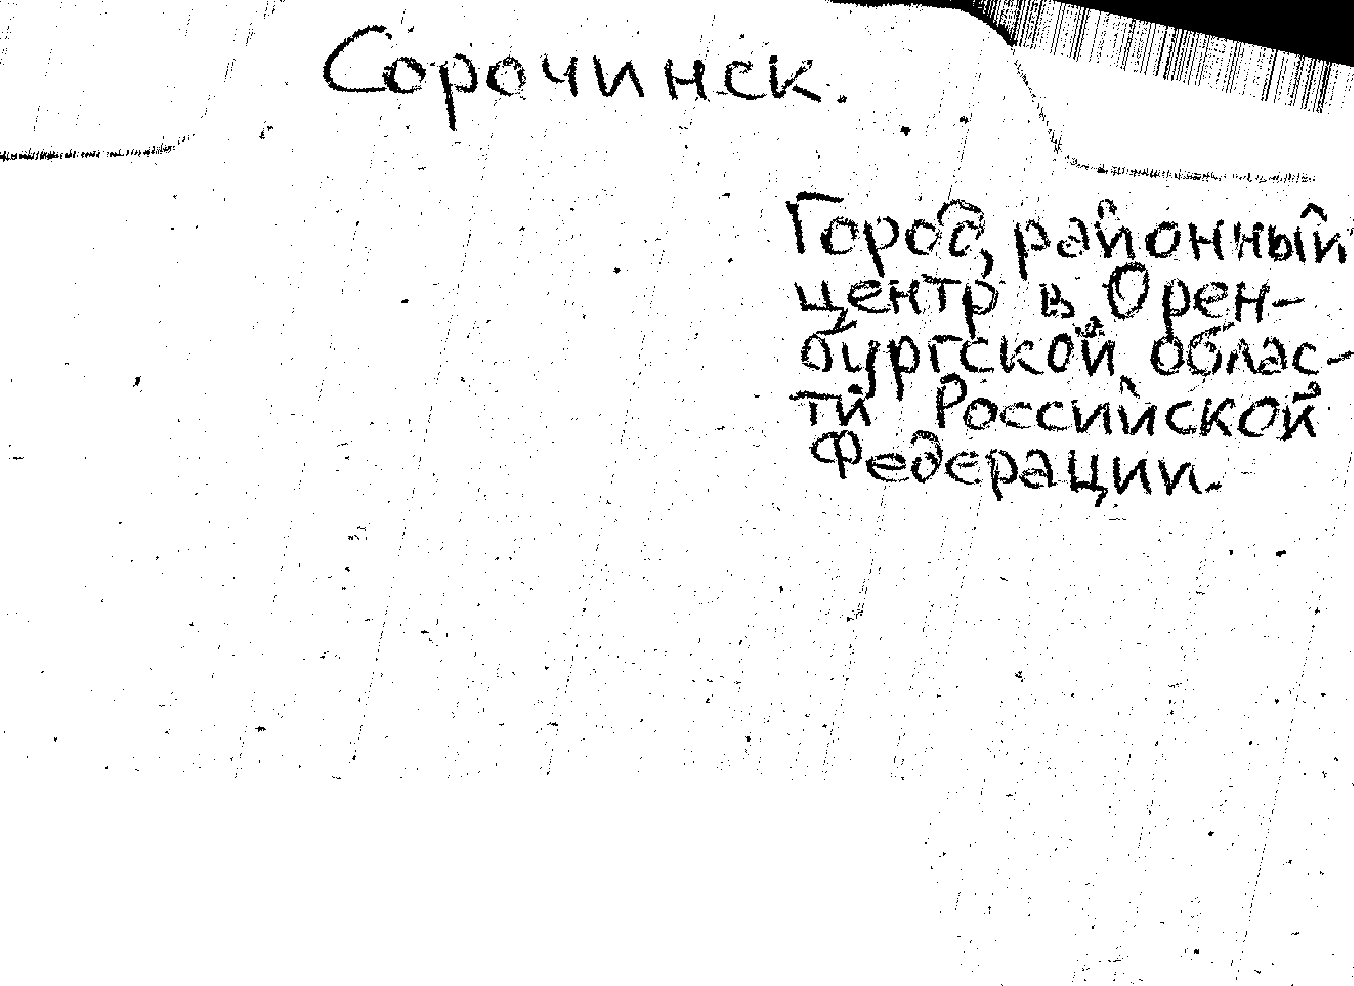 Сорочинск.
Город, районный
центр в Орен-
бургской облас-
ти Российской
Федерации.